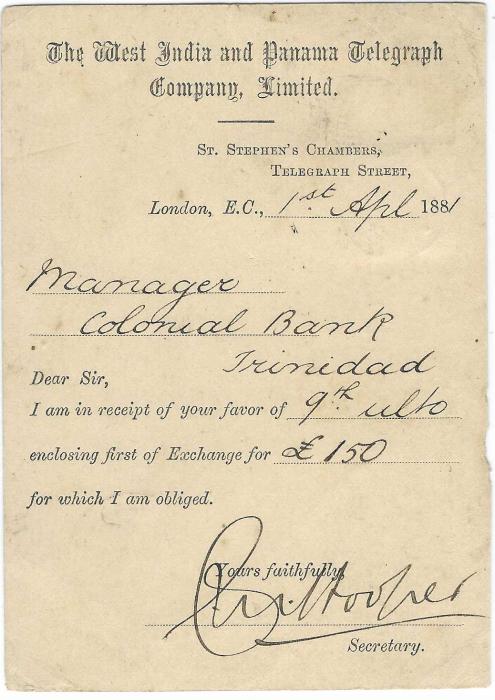 The West India and Panama Telegraph
Company, Limited.
St. Stephen's Chambers,
Telegraph Street,
London, E.C., 1st Apl 1881
Manager
Colonial Bank
Trinidad
Dear Sir,
I am in receipt of your favor of 9th ulto
enclosing first of Exchange for £150
for which I am obliged.
Yours faithfully,
Hooper
Secretary.